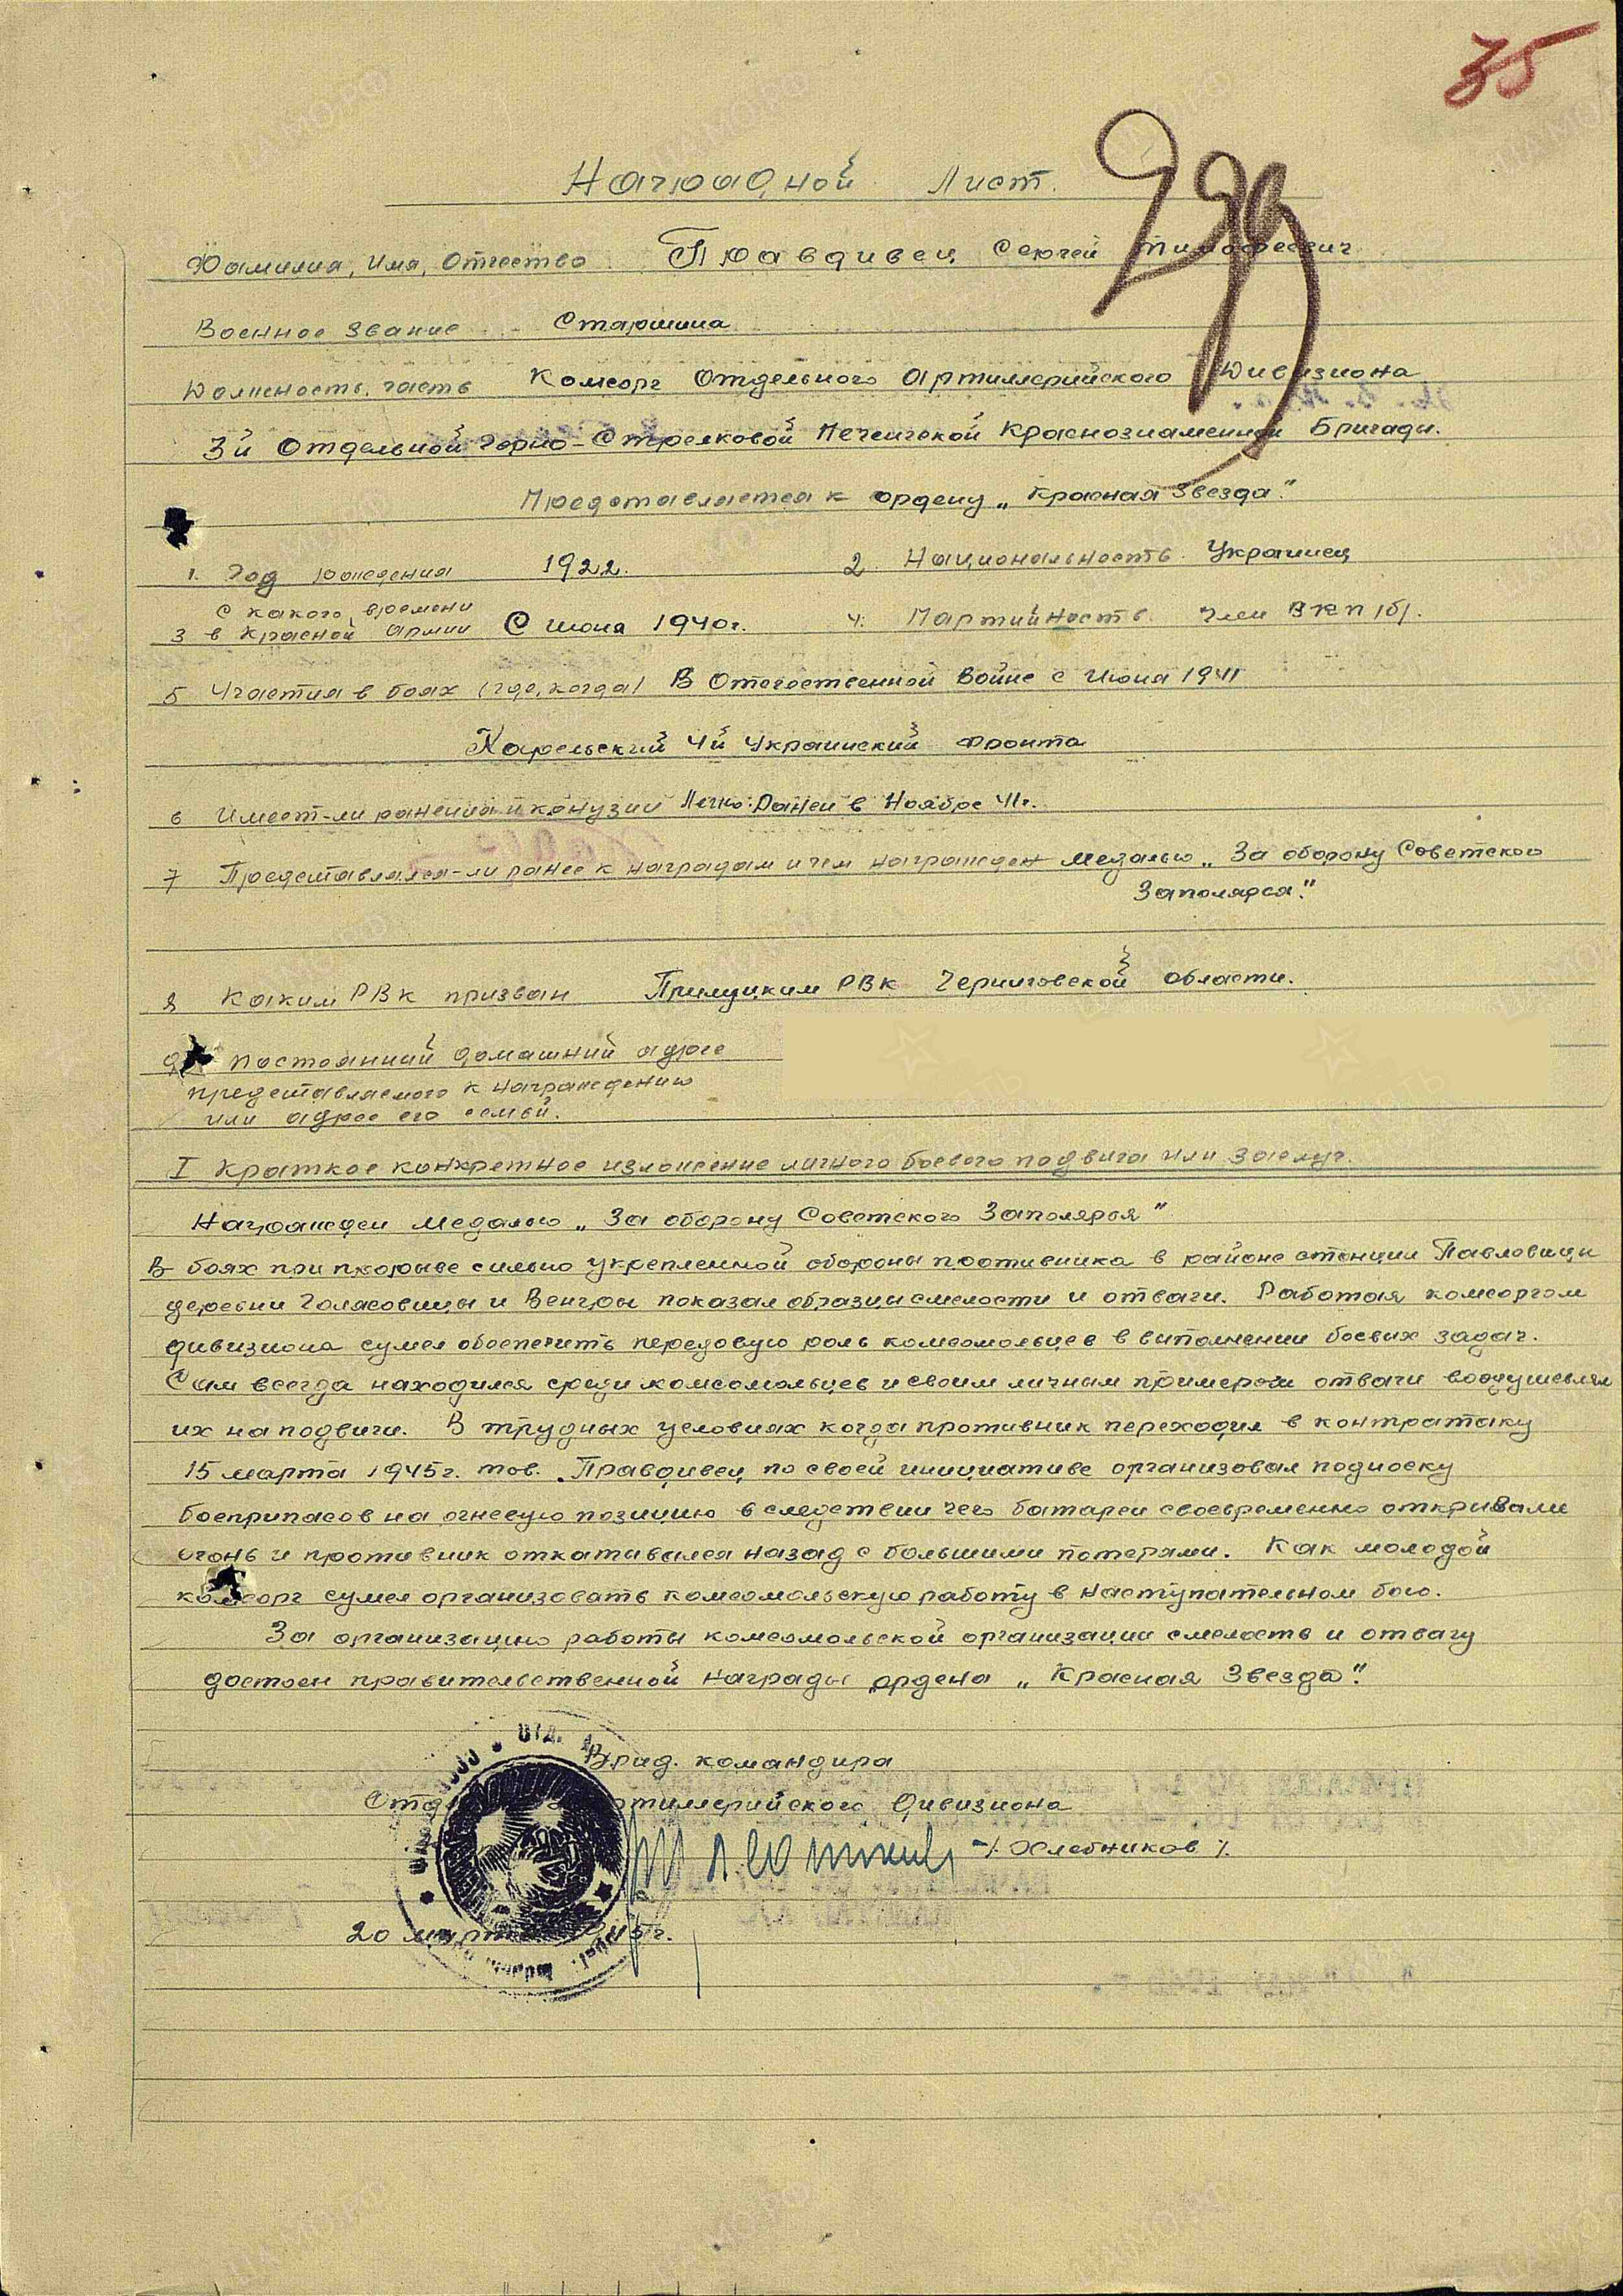 35
Наградной Лист.
Фамилия, Имя, Отчество Правдивец Сергей Тимофеевич
Военное звание Старшина
Должность, часть Комсорг Отдельного Артиллерийского Дивизиона
3й Отдельной Горно-Стрелковой Печенгской Краснознаменной Бригады.
Представляется к ордену „Красная Звезда."
1. Год рождения 1922. 2. Национальность Украинец
3 С какого времени в Красной Армии С июня 1940г. 4. Партийность член ВКП/б/.
5 Участия в боях (где, когда) В Отечественной Войне с Июня 1941
Карельский 4й Украинский фронта
6 Имеет-ли ранения и контузии Легко: Ранен в Ноябре 41г.
7 Представлялся-ли ранее к наградам и чем награжден медалью „За оборону Советского
Заполярся."
8 Каким РВК призван Прилуцким РВК Черниговской области.
9 Постоянний домашний адрес
представляемого к награждению
или адрес его семьи.
I Краткое конкретное изложение личного боевого подвига или заслуг.
Награжден медалью „За оборону Советского Заполярья"
В боях при прорыве сильно укрепленной обороны противника в районе станции Павловицы
деревни Голясовицы и Венгры показал образцы смелости и отваги. Работая комсоргом
дивизиона сумел обоспечить передовую роль комсомольцев в виполнении боевих задач.
Сам всегда находился среди комсомольцев и своим личным примером отваги воодушевлял
их на подвиги. В трудных условиях когда противник переходил в контратаку
15 марта 1945г. тов. Правдивец по своей инициативе организовал подноску
боеприпасов на огневую позицию вследствии чего батареи своевременно откривали
огонь и противник откативался назад с большими потерями. Как молодой
комсорг сумел организовать комсомольскую работу в наступательном бою.
За организацию работы комсомольской организации смелость и отвагу
достоен правительственной награды ордена „Красная Звезда".
Врид. командира
Артиллерийского Дивизиона
/. Хлебников /.
20 марта 1945г.